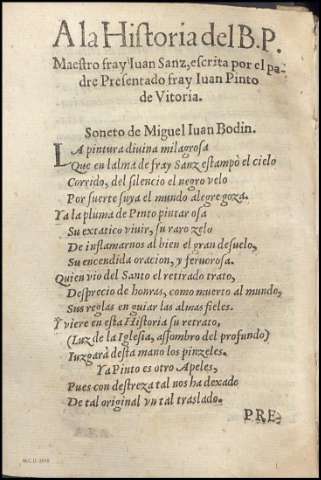 A la Historia del B.P.
Maestro fray Iuan Sanz, escrita por el pa-
dre Presentado fray Iuan Pinto
de Vitoria.
Soneto de Miguel Iuan Bodin.
LA pintura diuina milagrosa
Que en lalma de fray Sanz estampò el cielo
Corrido, del silencio el negro velo
Por suerte suya el mundo alegre goza.
Ya la pluma de Pinto pintar osa
Su extatico viuir, su raro zelo
De inflamarnos al bien el gran desuelo,
Su encendida oracion, y feruorosa.
Quien vio del Santo el retirado trato,
Desprecio de honras, como muerto al mundo,
Sus reglas en guiar las almas fieles.
Y viere en esta Historia su retrato,
(Luz de la Iglesia, assombro del profundo)
Iuzgarà desta mano los pinzeles.
Ya Pinto es otro Apeles,
Pues con destreza tal nos ha dexado
De tal original vn tal traslado.
PRE-